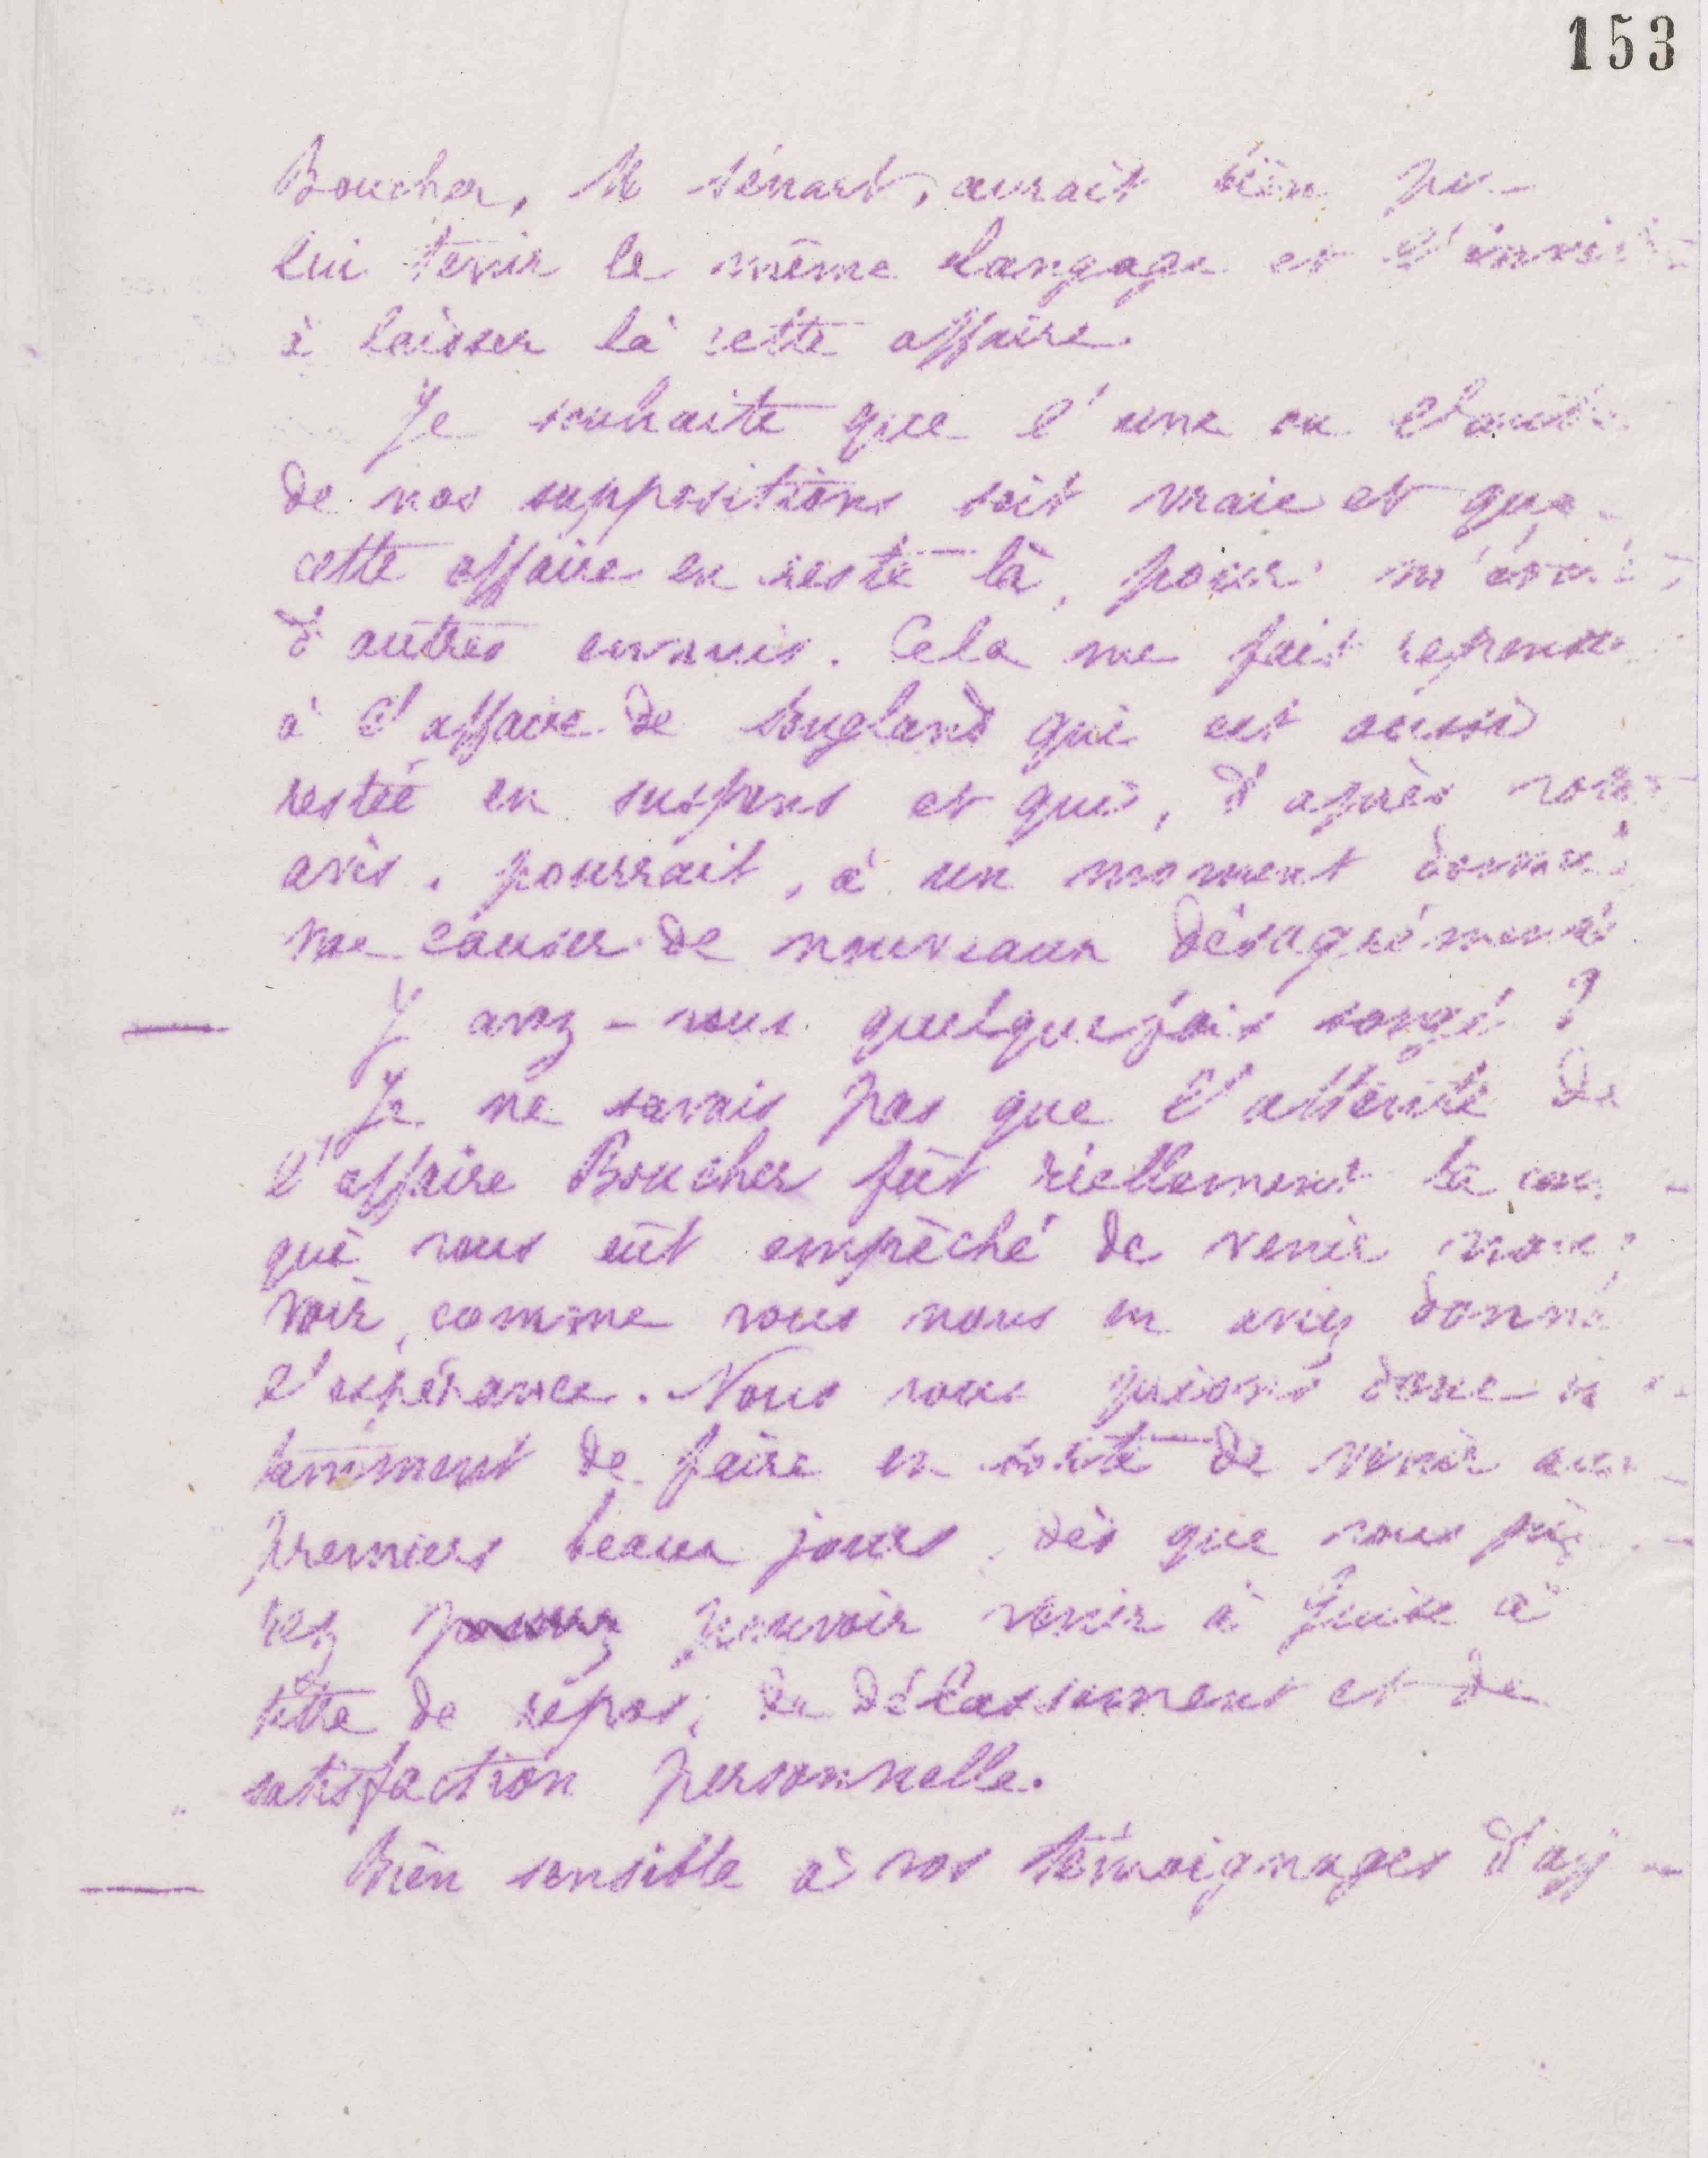 153
Boucher, M Sénart, aurait bien pu
lui tenir le même langage et l'invi
à laisser là cette affaire.
Je souhaite que l'une ou l'autre
de nos suppositions soit vraie et que
cette affaire en reste là, pour m'évi
d'autres ennuis. Cela me fait
à l'affaire de Sougland qui est aussi
restée en suspens et qui, d'après
avis, pourrait, à un moment donné
me causer de nouveaux désagréments
Y avez-vous quelquefois songé ?
Je ne savais pas que l'attente de
l'affaire Boucher fût réellement la
qui vous eût empêché de venir nous
voir, comme vous nous en aviez donné
l'espérance. Nous vous prions donc
tamment de faire en sorte de venir aux
premiers beaux jours, dès que vous
rez pouvoir venir à Guise à
titre de repos, de délassement et de
satisfaction personnelle.
Bien sensible à vos témoignages d'af